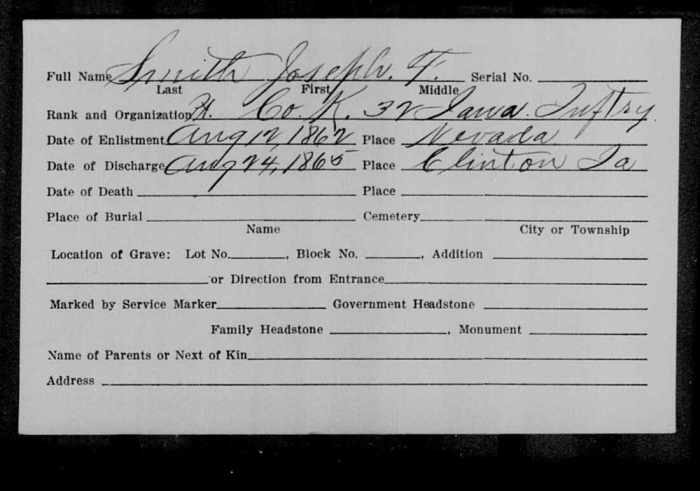 Full Name Smith Joseph. F. Serial No.
Last First Middle
Rank and Organization Co. K. 32 Iowa. Inftry.
Date of Enlistment Aug 12, 1862 Place Nevada
Date of Discharge Aug 24, 1865 Place Clinton Ia
Date of Death Place
Place of Burial Cemetery
Name City or Township
Location of Grave: Lot No. , Block No. , Addition
or Direction from Entrance
Marked by Service Marker Government Headstone
Family Headstone , Monument
Name of Parents or Next of Kin
Address